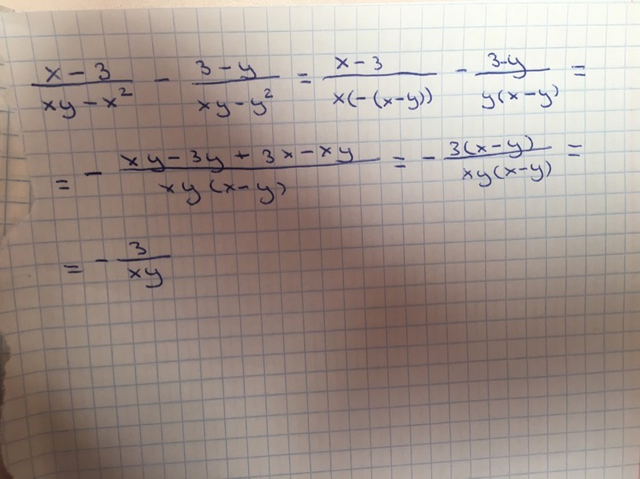 (x - 3)/(xy - x²) - (3 - y)/(xy - y²) = (x - 3)/(x(-(x-y))) - (3-y)/(y(x-y)) =
= - (xy - 3y + 3x - xy)/(xy(x-y)) = - (3(x-y))/(xy(x-y)) =
= - 3/(xy)